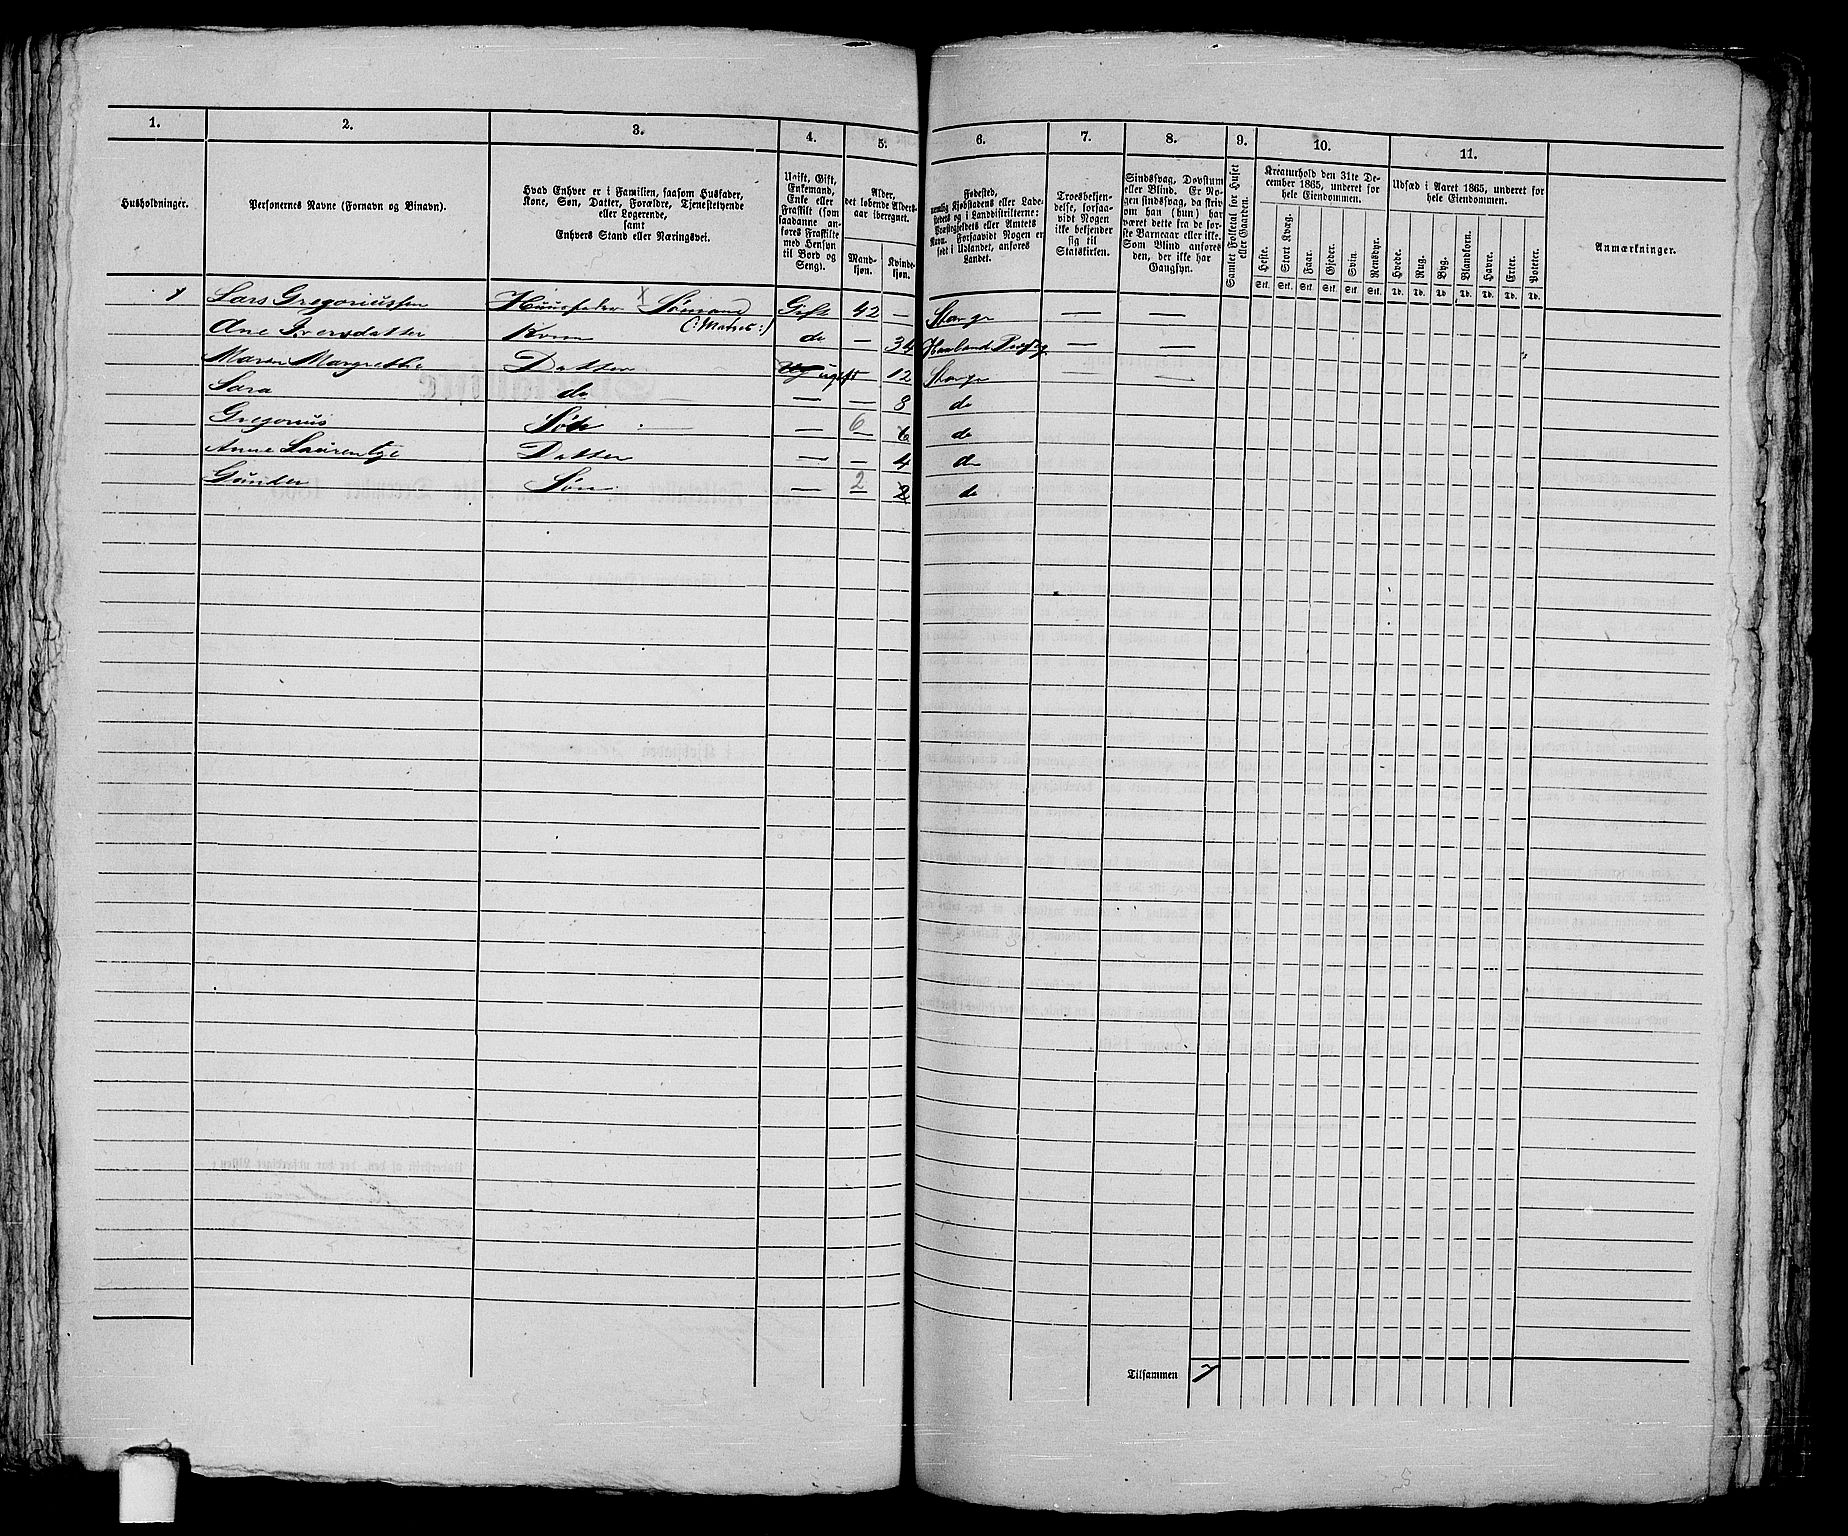 1. 2. 3. 4. 5. 6. 7. 8. 9. 10. 11.
Husholdninger.
Personernes Navne (Fornavn og Binavn).
Hvad Enhver er i Familien, saasom Husfader,
Kone, Søn, Datter, Forældre, Tjenestetyende
eller Logerende,
samt
Enhvers Stand eller Næringsvei.
Ugift, Gift,
Enkemand,
Enke eller
Fraskilt (som
saadanne an-
føres Fraskilte
med Hensyn
til Bord og
Seng).
Alder,
det løbende Alders-
aar iberegnet.
Mand-
kjøn.
Kvinde-
kjøn.
Fødested,
nemlig Kjøbstadens eller Lade-
stedets og i Landdistrikterne:
Præstegjeldets eller Amtets
Navn. Forsaavidt Nogen er
født i Udlandet, anføres
Landet.
Troesbekjen-
delse, forsaa-
vidt Nogen
ikke bekjender
sig til
Statskirken.
Sindssvag, Døvstum
eller Blind. Er No-
gen sindssvag, da skriv
om han (hun) har
været dette fra de før-
ste Barneaar eller ikke.
Som Blind anføres
den, der ikke har
Gangsyn.
Samlet Folketal for Huset
eller Gaarden.
Kreaturhold den 31te De-
cember 1865, underet for
hele Eiendommen.
Heste. Stort Kvæg. Faar. Gjeder. Svin. Rensdyr.
Stk. Stk. Stk. Stk. Stk. Stk.
Udsæd i Aaret 1865, underet for
hele Eiendommen.
Hvede. Rug. Byg. Blandkorn. Havre. Erter. Poteter.
Td. Td. Td. Td. Td. Td. Td.
Anmærkninger.
Lars Gregoriussen Huusfader Sømand Gift 42 — Stavgr — —
Ane Iversdatter Kone do — 34 — —
Maren Margrethe Datter ugift — 12 Stavgr — —
Sara do — — 8 do
Gregorius Søn — 6 6 do
Anne Laurentze Datter — — 4 do
Gunder Søn — 2 2 do
Tilsammen 7